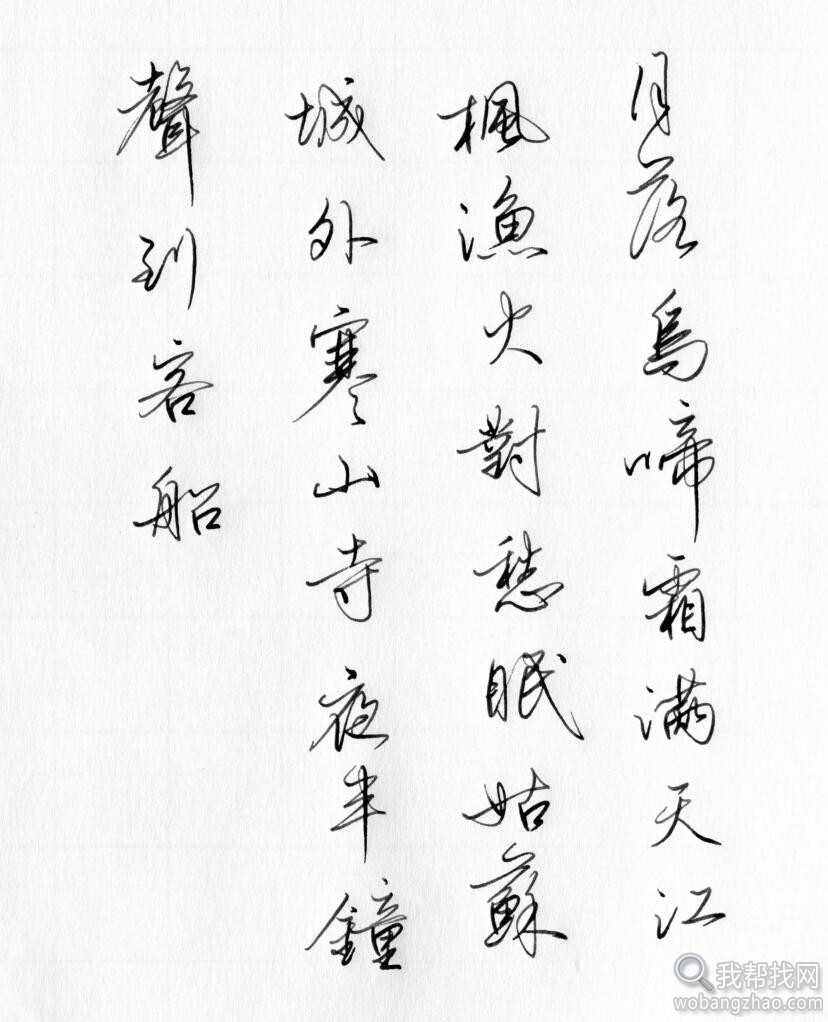 月落烏啼霜滿天江
楓漁火對愁眠姑蘇
城外寒山寺夜半鐘
聲到客船
我帮找网
wobangzhao.com